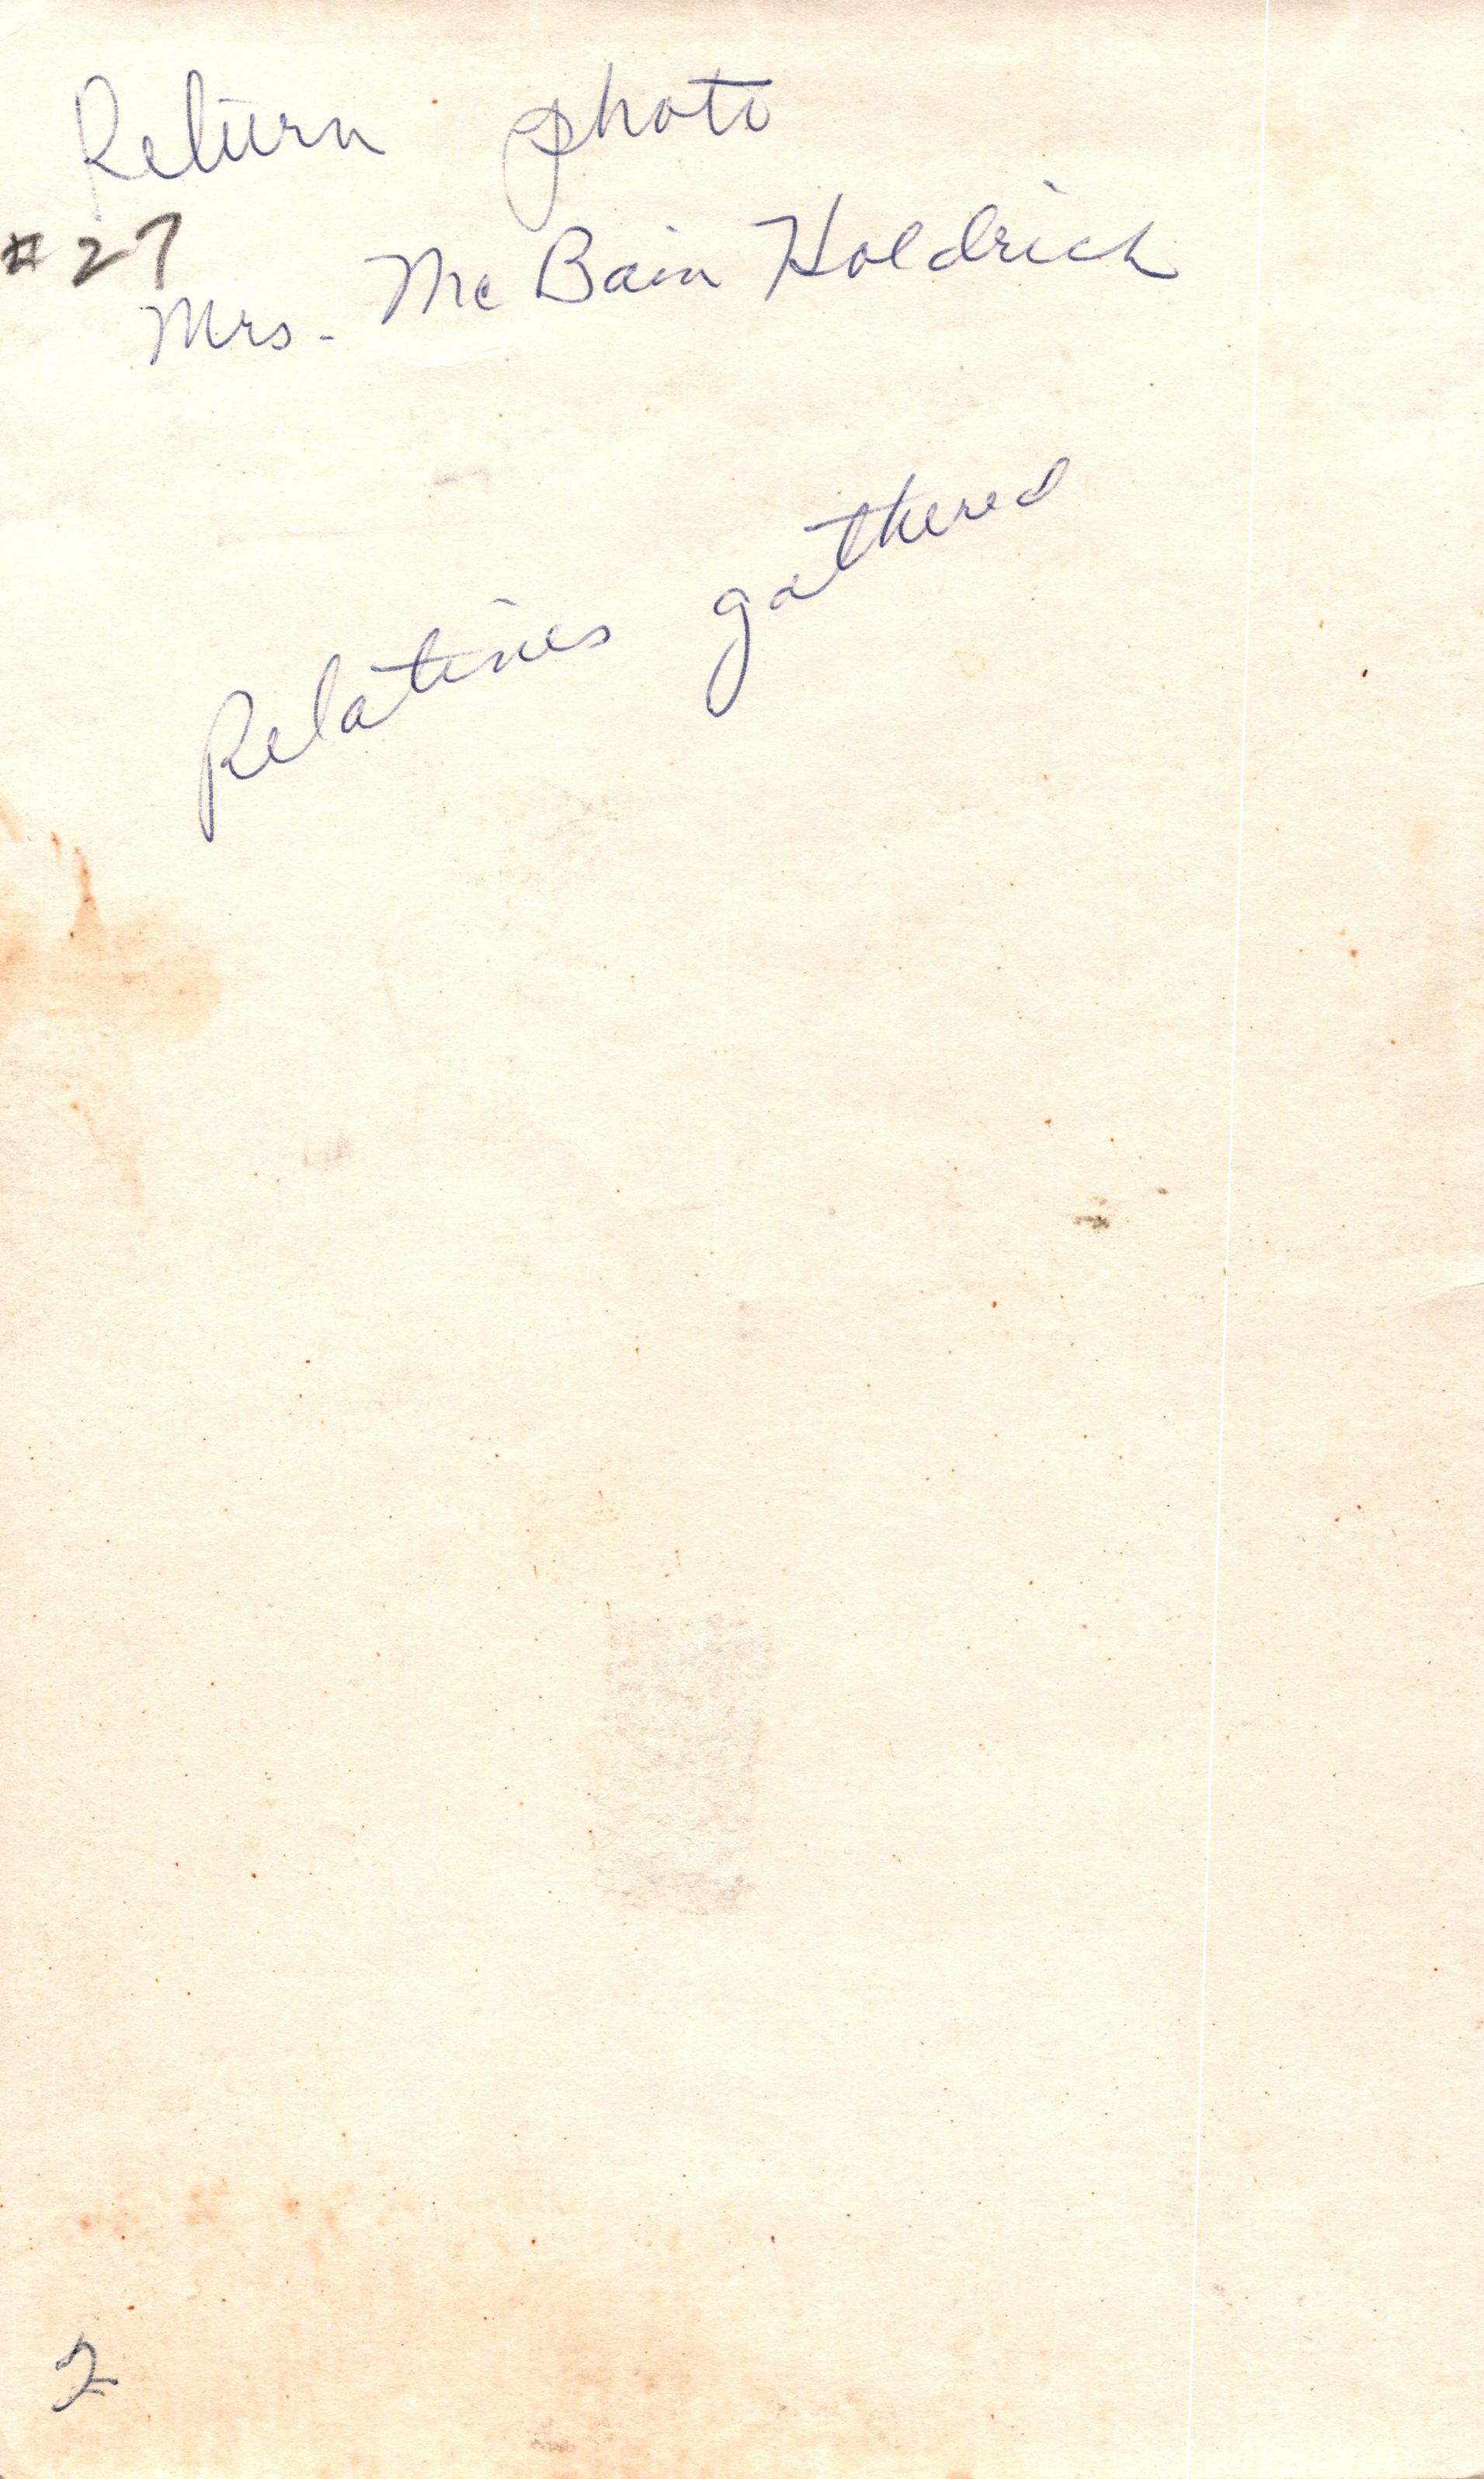 Return photo
#27
Mrs. McBain Holdrich
Relatives gathered
2